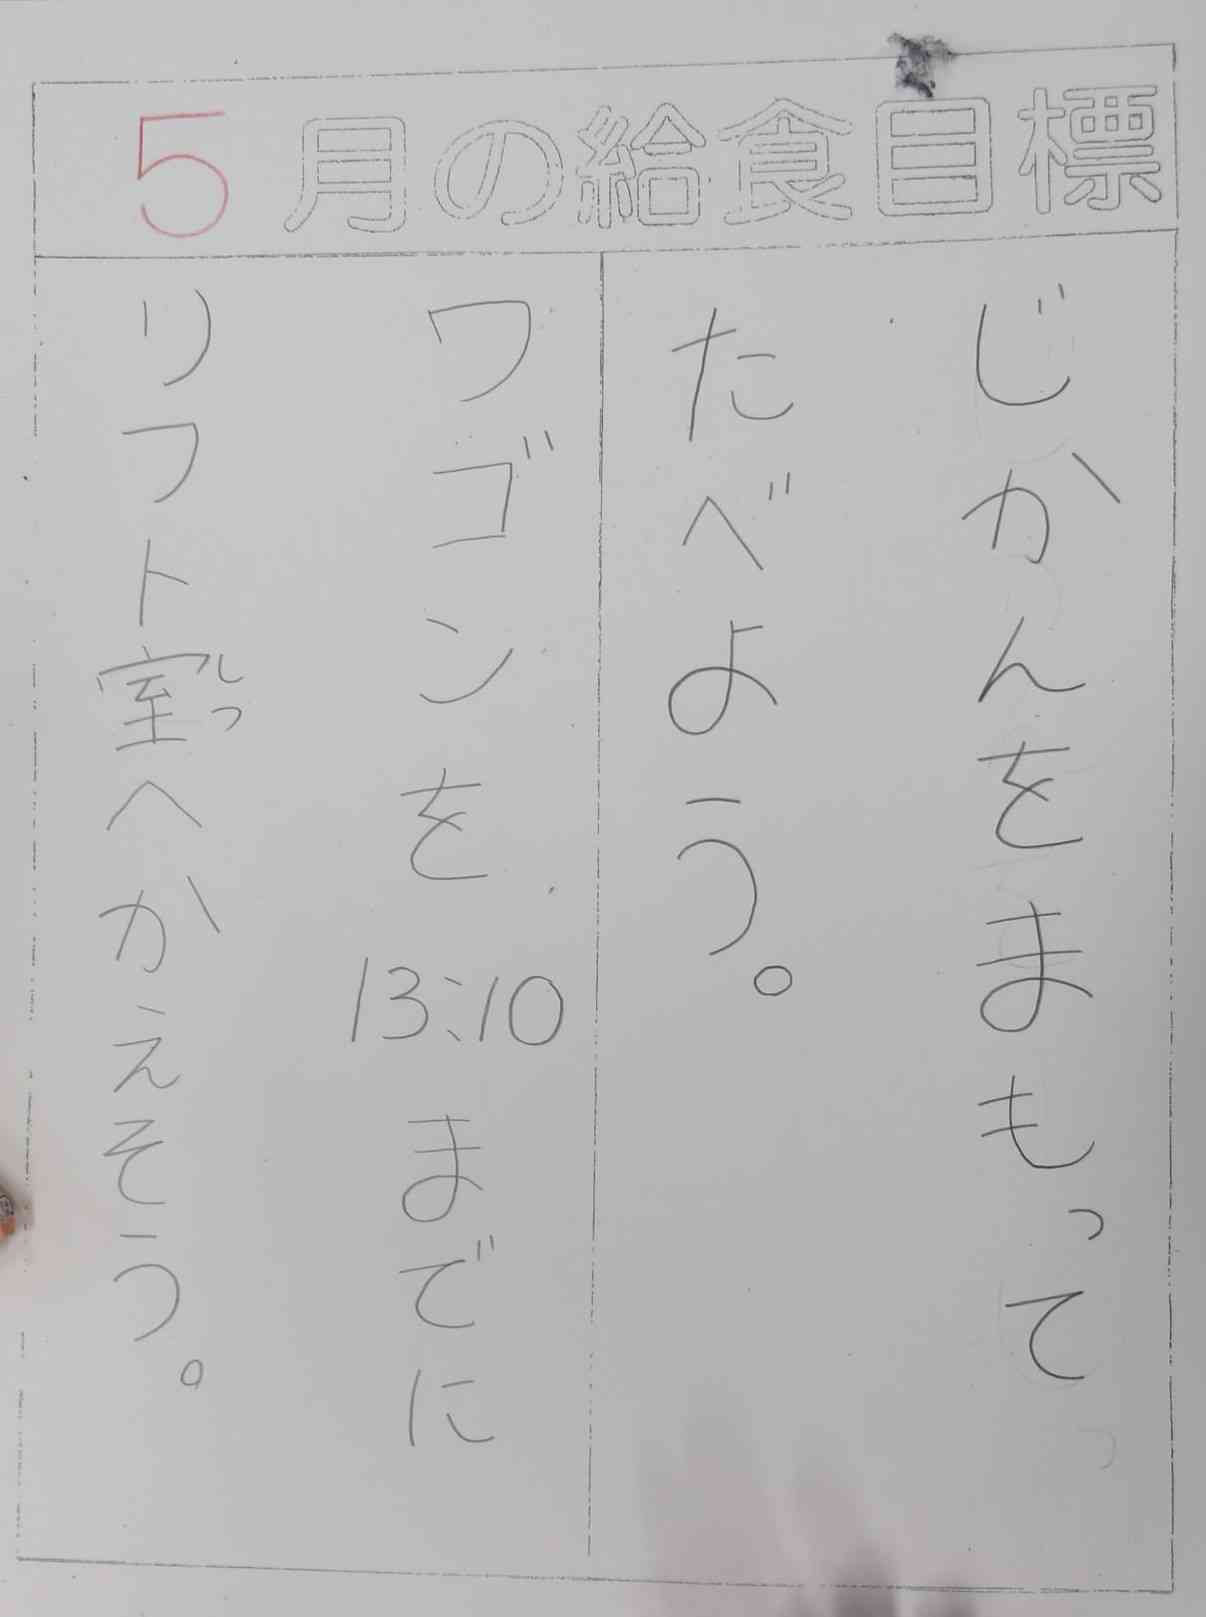 5月の給食目標
じかんをまもって
たべよう。
ワゴンを 13:10 までに
リフト室へかえそう。
しつ